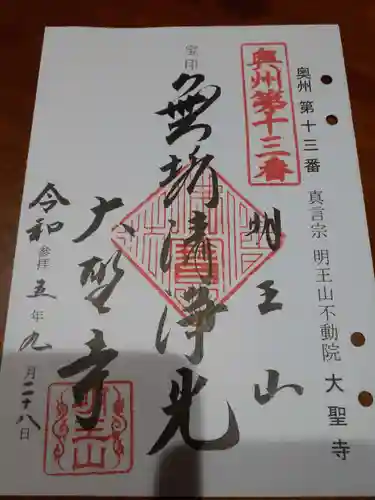 奥州 第十三番
真言宗 明王山不動院 大聖寺
奥州第十三番
宝印
無垢清浄光
明王山
大聖寺
令和 参拝 五年九月二十八日
明王山